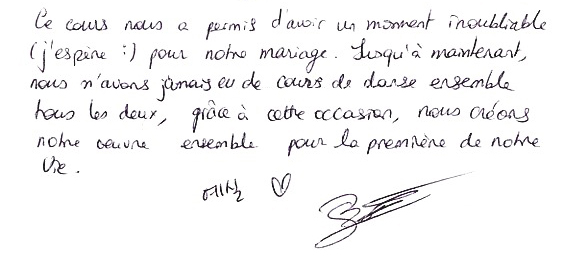 Ce cours nous a permis d'avoir un moment inoubliable
(j'espère :) pour notre mariage. Jusqu'à maintenant,
nous n'avons jamais eu de cours de danse ensemble
tous les deux, grâce à cette occasion, nous créons
notre œuvre ensemble pour la première de notre
vie.
예슬 ♡